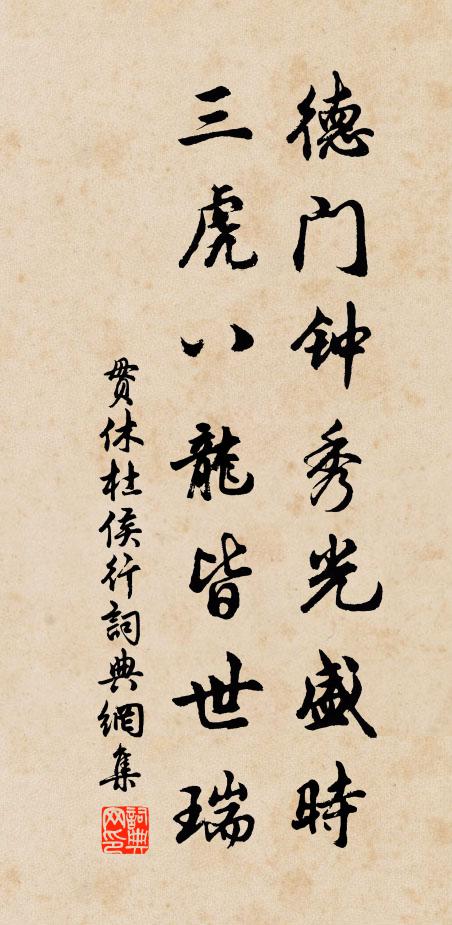 德门钟秀光盛時
三虎八龍皆世瑞
贯休杜侯行詞典網集
詞典网印